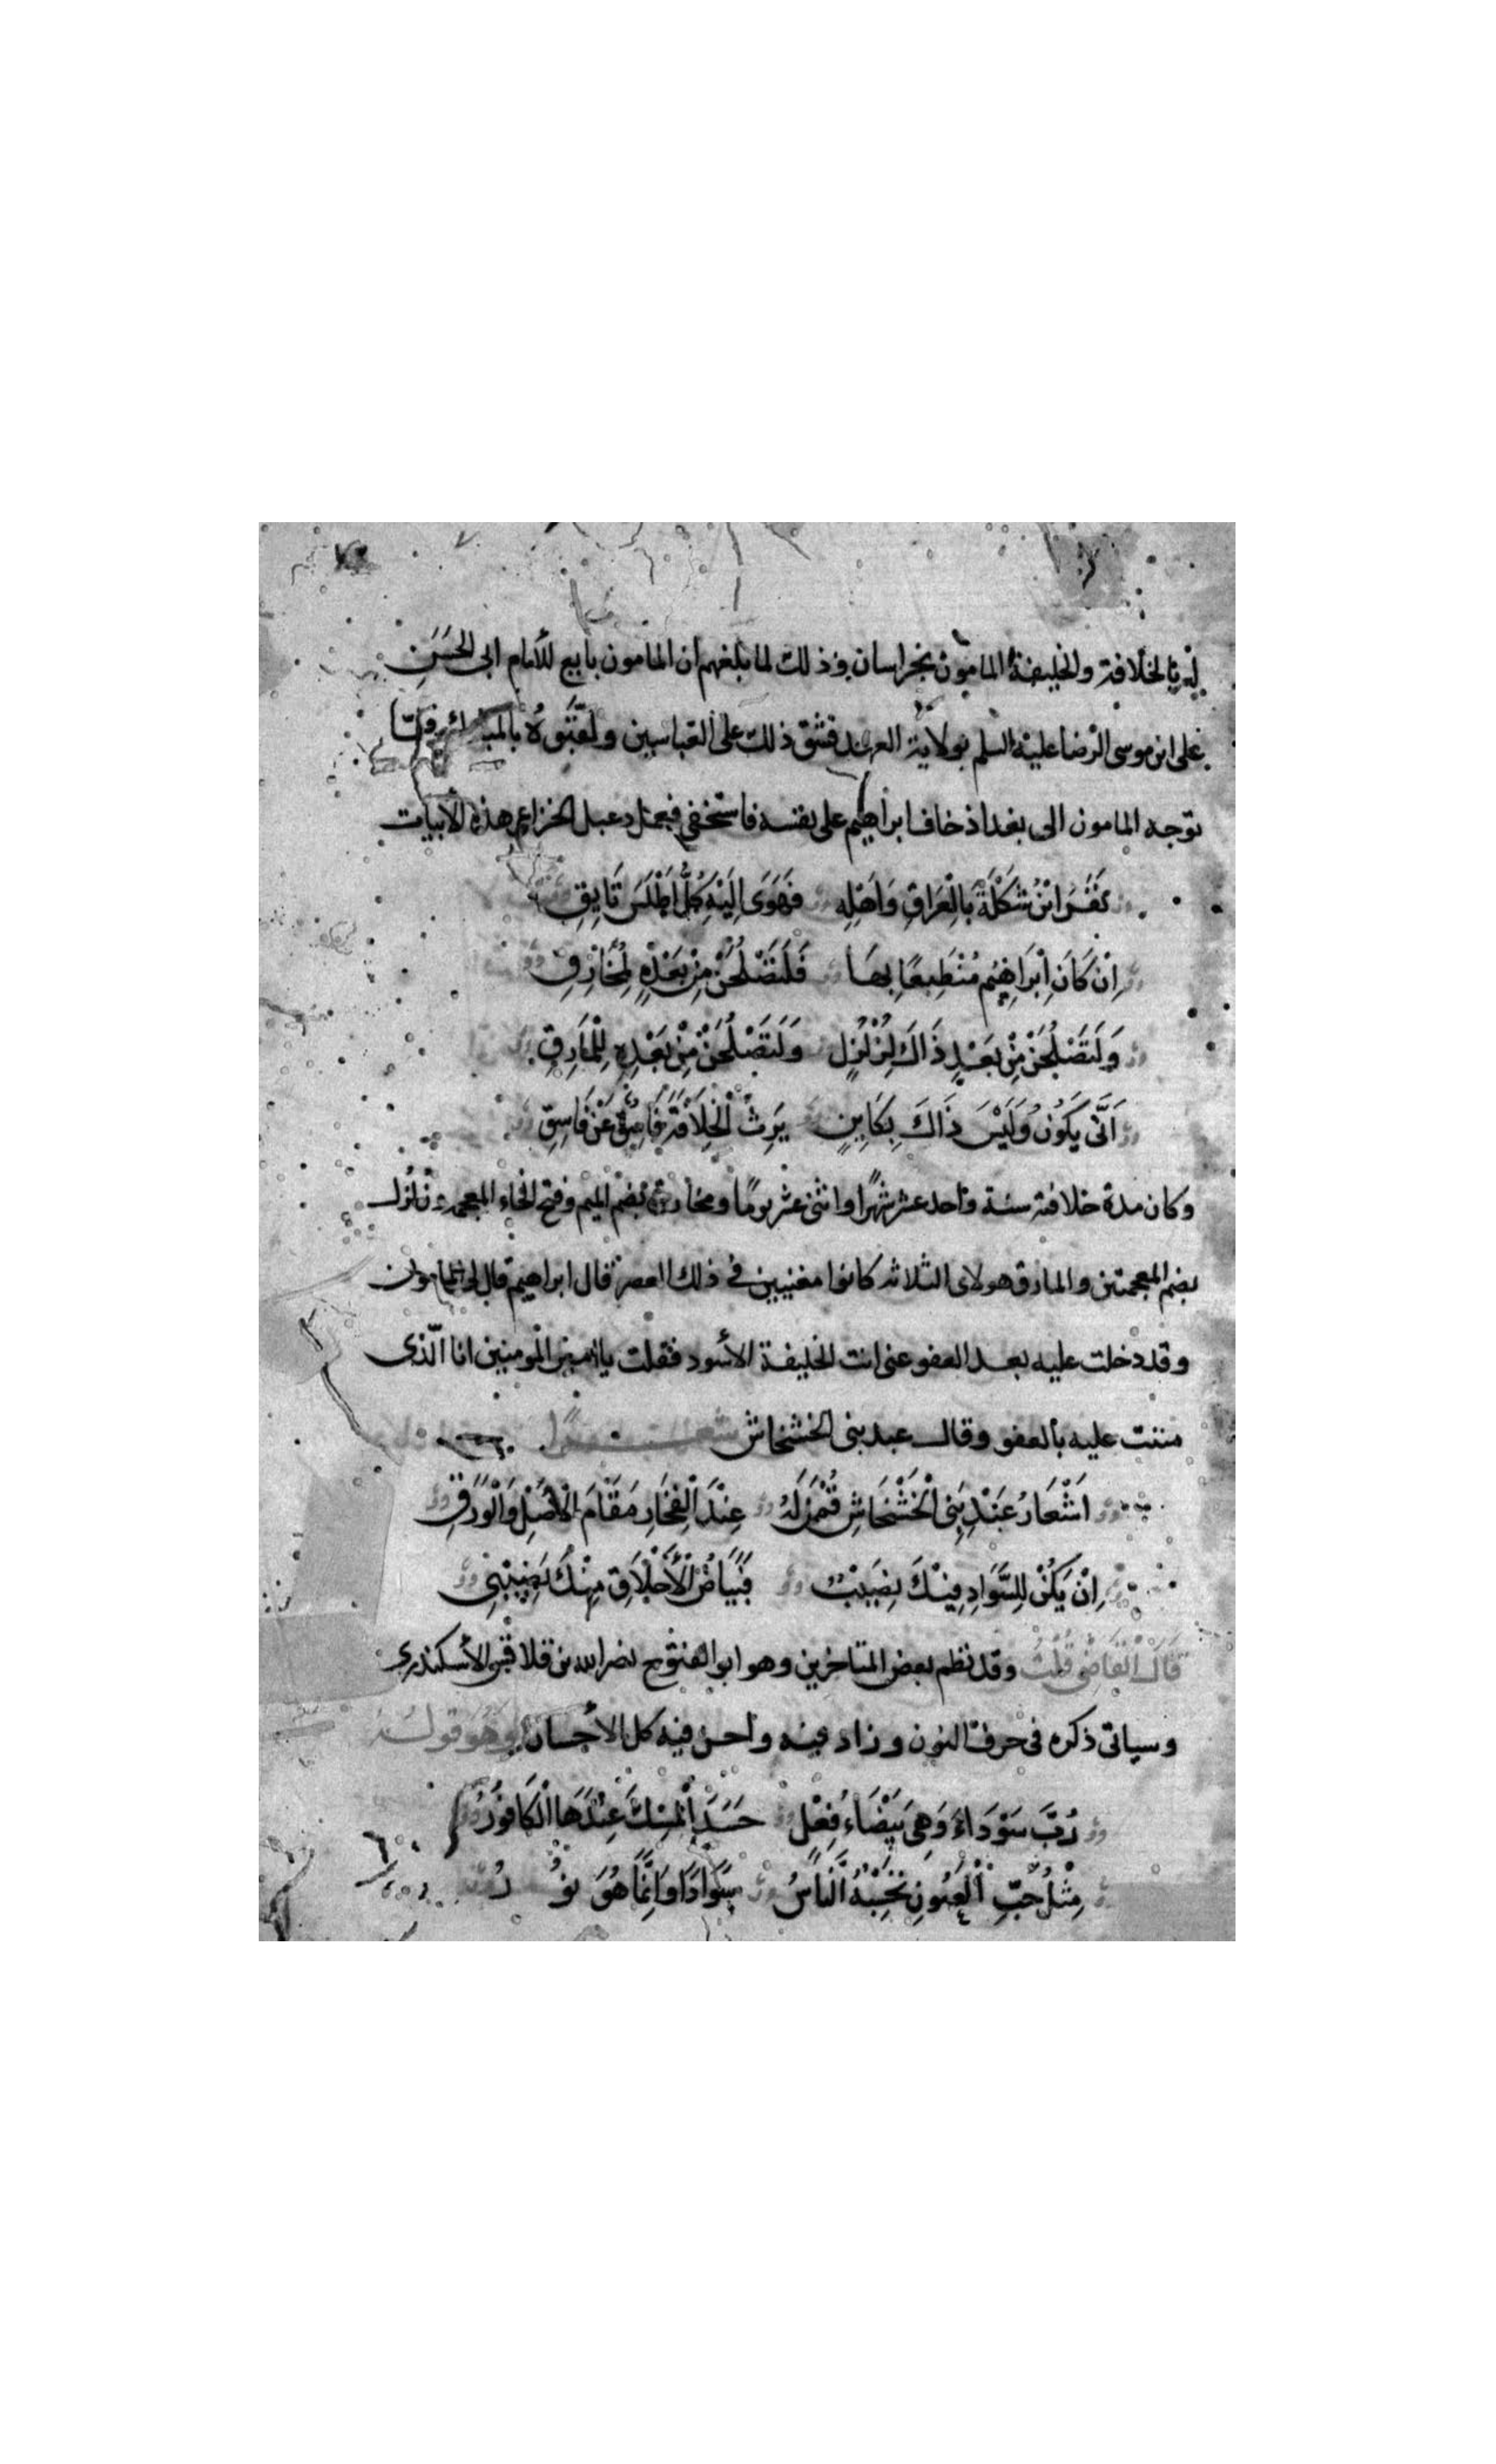 له بالخلافة والخليفة المامون بخراسان وذلك لما بلغهم ان المامون بايع للأمام ابى الحَسَنِ
على ابن موسى الرضا عليه السلم بولاية العهد فشق ذلك على العباسيين ولقبوهُ بالمبارك ولمّا
توجه المامون الى بغداذ خاف ابراهيم على نفسه فاستخفى فعمل دعبل الخزاعى هذه الأبيات
نَفَرَ ابْنُ شَكْلَةَ بِالْعِرَاقِ وَاَهْلِهِ فَهَوَى اِلَيْهِ كُلُّ اَطْلَسَ مَايِقِ
اِنْ كَانَ اِبْرَاهِيْمُ مُضْطَلِعًا بِهَا فَلَتَصْلُحَنْ مِنْ بَعْدِهِ لِمُخَارِقِ
وَلَتَصْلُحَنْ مِنْ بَعْدِ ذَاكَ لِزُلْزُلٍ وَلَتَصْلُحَنْ مِنْ بَعْدِهِ لِلْمَارِقِ
اَنَّى يَكُوْنُ وَلَيْسَ ذَاكَ بِكَايِنٍ يَرِثُ الْخِلَافَةَ فَاسِقٌ عَنْ فَاسِقِ
وكان مدة خلافته سنة واحد عشر شهرًا واثنى عشر يومًا ومخارق بضم الميم وفتح الخاء المعجمة وزلزل
بضم المعجمتين والمارق هولاى الثلاثه كانوا مغنيين فى ذلك العصر قال ابراهيم قال لى المامون
وقد دخلت عليه بعد العفو عنى انت الخليفة الأسود فقلت يا امير المومنين انا الّذى
مننت عليه بالعفو وقال عبد بنى الخشخاش شعـــرًا
اَشْعَارُ عَبْدِ بَنِى الْخَشْخَاشِ قُمْنَ لَهُ عِنْدَ الْفِخَارِ مَقَامَ الْأَصْلِ وَالْوَرَقِ
اِنْ يَكُنْ لِلسَّوَادِ فِيْكَ نَصِيْبٌ فَبَيَاضُ الْأَخْلَاقِ مِنْكَ نَصِيْبِى
قَالَ الْقَاضِى قُلْتُ وقد نظم بعض المتاخرين وهو ابو الفتوح نصر الله بن قلاقس الأسكندرى
وسياتى ذكره فى حرف النون وزاد فيه واحسن فيه كل الأحسان وهُو قولـــه
رُبَّ سَوْدَاءَ وَهِىَ بَيْضَاءُ فِعْلٍ حَسَدَ الْمِسْكَ عِنْدَهَا الْكَافُوْرُ
مِثْلُ حَبِّ الْعُيُونِ تَحْسِبُهُ النَّاسُ سَوَادًا وَاِنَّمَا هُوَ نُوْرُ